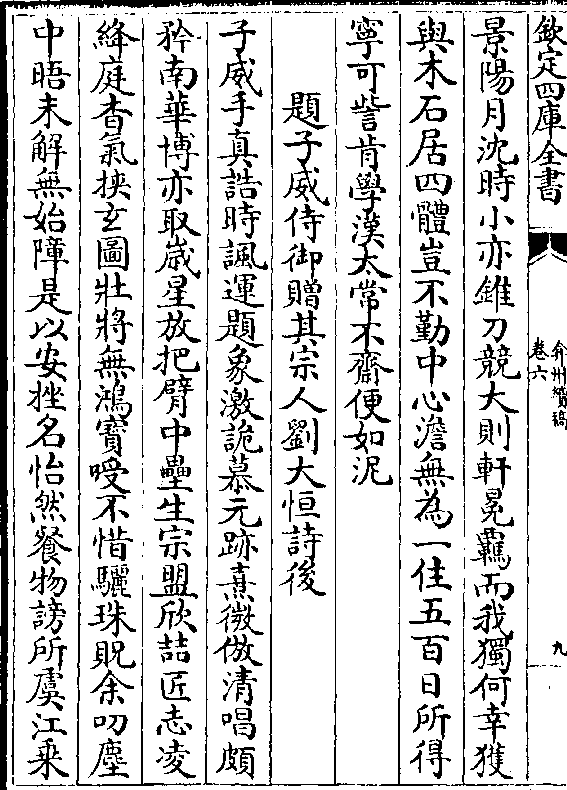 欽定四庫全書
弇州續稿
卷六
九
景陽月沈時小亦錐刀競大則軒冕羈而我獨何幸獲
與木石居四體豈不勤中心澹無為一住五百日所得
寧可訾肯學漢太常不齋便如泥
題子威侍御贈其宗人劉大恒詩後
子威手真誥時諷運題象激詭慕元跡熹微倣清唱頗
矜南華博亦取嵗星放把臂中壘生宗盟欣喆匠志凌
絳庭杳氣挾玄圖壯將無鴻寶嗳不惜驪珠貺余叨塵
中晤未解無始障是以安挫名怡然餐物謗所虞江乗